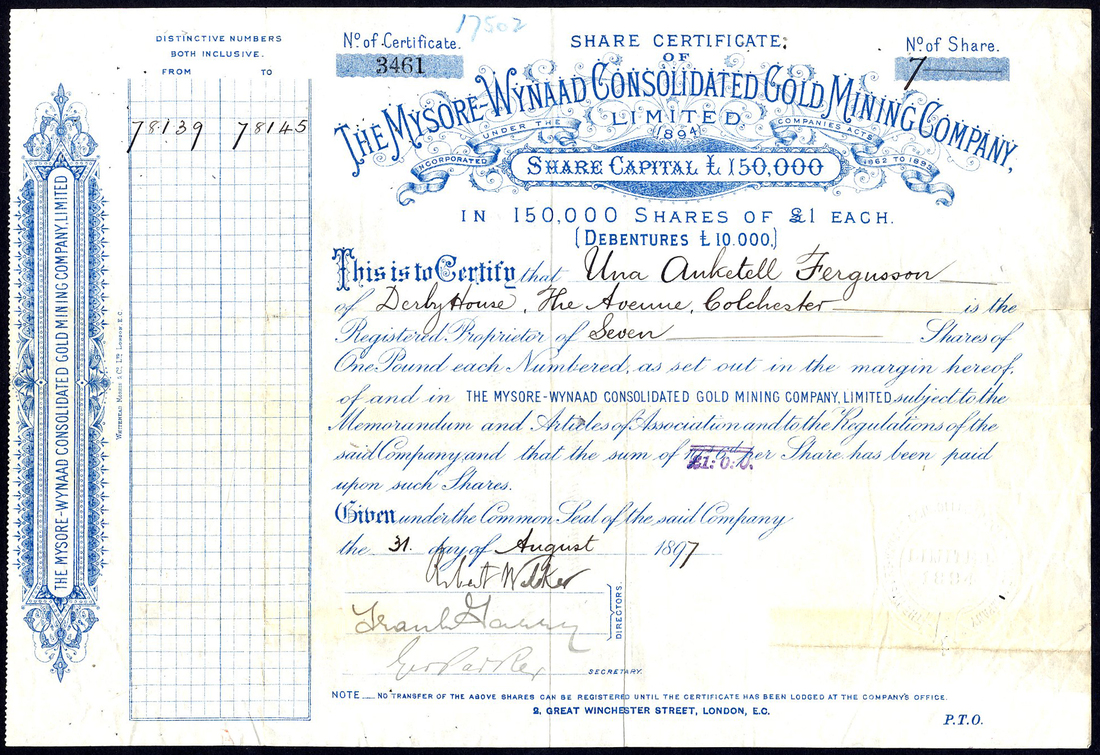 17502
DISTINCTIVE NUMBERS
BOTH INCLUSIVE.
FROM TO
78139 78145
THE MYSORE-WYNAAD CONSOLIDATED GOLD MINING COMPANY, LIMITED
WHITEHEAD MORRIS & Co. LTD LONDON, E.C.
No. of Certificate.
3461
SHARE CERTIFICATE
OF
No. of Share.
7
THE MYSORE-WYNAAD CONSOLIDATED GOLD MINING COMPANY,
LIMITED
1894
INCORPORATED UNDER THE COMPANIES ACTS 1862 TO 1893
SHARE CAPITAL £150,000
IN 150,000 SHARES OF £1 EACH.
(DEBENTURES £10.000.)
This is to Certify that Una Anketell Fergusson
of Derby House, The Avenue, Colchester is the
Registered Proprietor of Seven Shares of
One Pound each Numbered, as set out in the margin hereof,
of and in THE MYSORE-WYNAAD CONSOLIDATED GOLD MINING COMPANY, LIMITED subject to the
Memorandum and Articles of Association and to the Regulations of the
said Company, and that the sum of £1:0:0. per Share has been paid
upon such Shares.
Given under the Common Seal of the said Company
the 31. day of August 1897
DIRECTORS.
SECRETARY.
NOTE__ NO TRANSFER OF THE ABOVE SHARES CAN BE REGISTERED UNTIL THE CERTIFICATE HAS BEEN LODGED AT THE COMPANY'S OFFICE.
2, GREAT WINCHESTER STREET, LONDON, E.C.
P.T.O.